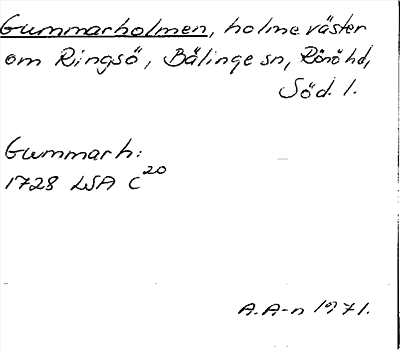 Gummarholmen, holme väster
om Ringsö, Bälinge sn, Rönö hd,
Söd. l.
Gummarh:
1728 LSA C20
A.A-n 1971.